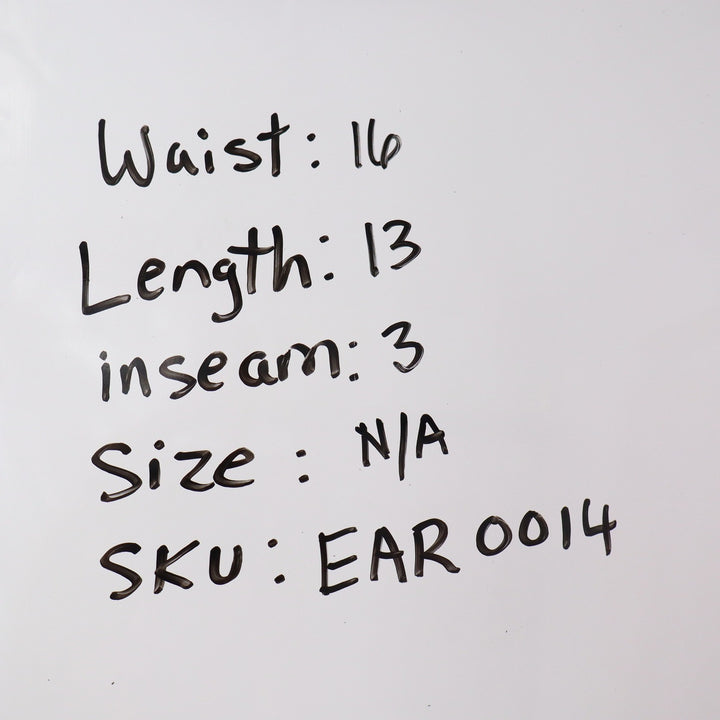 Waist: 16
Length: 13
inseam: 3
Size : N/A
SKU: EAR 0014